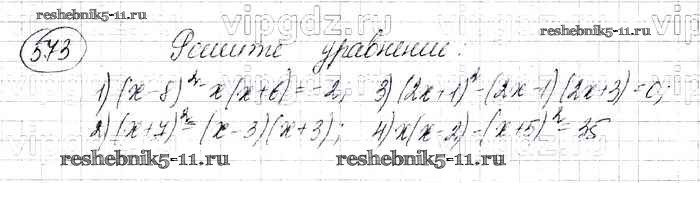 reshebnik5-11.ru
reshebnik5-11.ru
573 Решите уравнение:
1) (x-8)² - x(x+6) = -2; 3) (2x+1)² - (2x-1)(2x+3) = 0;
2) (x+7)² = (x-3)(x+3); 4) x(x-2) - (x+5)² = 35
reshebnik5-11.ru reshebnik5-11.ru